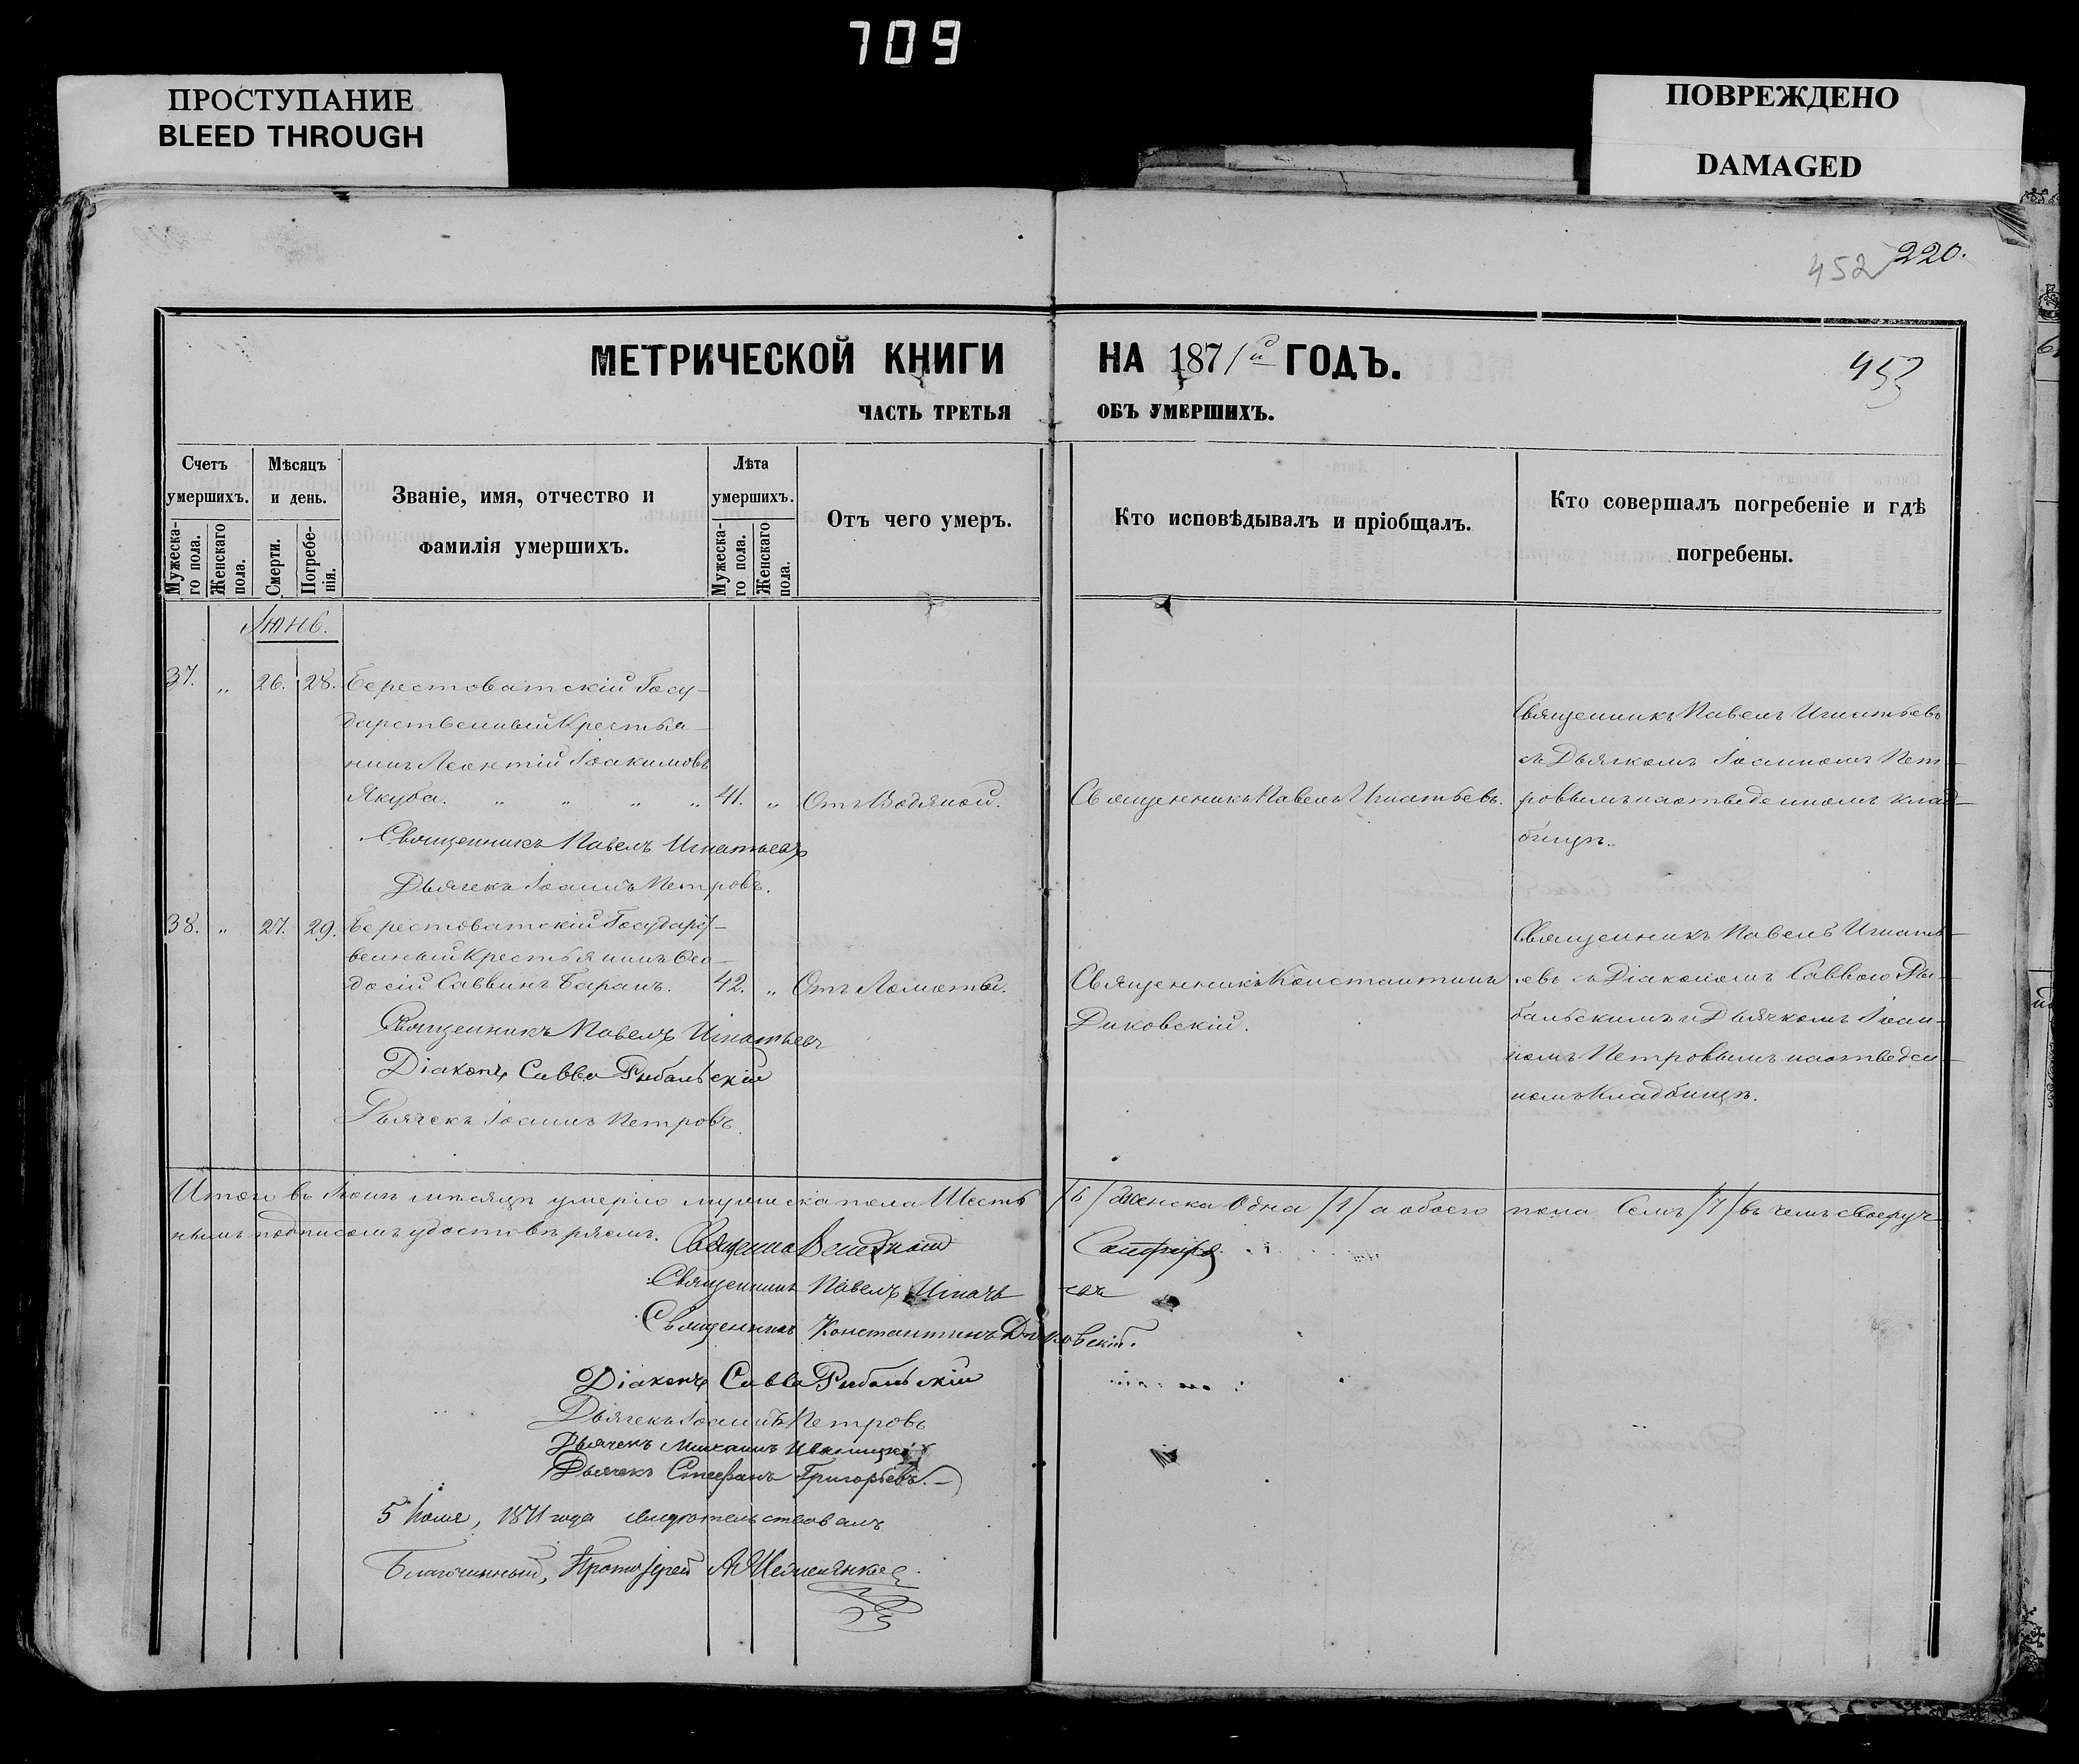 709
ПРОСТУПАНИЕ
BLEED THROUGH
ПОВРЕЖДЕНО
DAMAGED
452 220.
МЕТРИЧЕСКОЙ КНИГИ НА 1871й ГОДЪ.
453
ЧАСТЬ ТРЕТЬЯ ОБЪ УМЕРШИХЪ.
Счетъ умершихъ.
Мужеска-го пола.
Женскаго пола.
Мѣсяцъ и день.
Смерти.
Погребе-нія.
Званіе, имя, отчество и
фамилія умершихъ.
Лѣта умершихъ.
Мужеска-го пола.
Женскаго пола.
Отъ чего умеръ.
Кто исповѣдывалъ и пріобщалъ.
Кто совершалъ погребеніе и гдѣ
погребены.
Іюнь.
37. „ 26. 28. Берестоватскій Госу-
дарственный Крестья-
нинъ Леонтій Іоакимовъ
Якуба. „ „ „ „ 41. „ Отъ Водяной.
Священникъ Павелъ Игнатьевъ.
Священникъ Павелъ Игнатьевъ
съ Дьячкомъ Іоанномъ Пет-
ровымъ на отведенномъ клад-
бищѣ.
Священникъ Павелъ Игнатьевъ
Дьячекъ Іоаннъ Петровъ.
38. „ 27. 29. Берестоватскій Государст-
венный Крестьянинъ Ѳео-
досій Саввинъ Баранъ. 42. „ Отъ Ломоты.
Священникъ Константинъ
Диковскій.
Священникъ Павелъ Игнать-
евъ съ Діакономъ Саввою Ры-
бальскимъ и Дьячкомъ Іоан-
номъ Петровымъ на отведен-
номъ Кладбищѣ.
Священникъ Павелъ Игнатьевъ
Діаконъ Савва Рыбальскій
Дьячекъ Іоаннъ Петровъ.
Итого въ Іюнѣ мѣсяцѣ умерло мужеска пола Шесть /6/ женска Одна /1/ а обоего пола Семь /7/ въ чемъ своеруч-
нымъ подписомъ удостовѣряемъ.
Священникъ Павелъ Игнатьевъ
Священникъ Константинъ Диковскій.
Діаконъ Савва Рыбальскій
Дьячекъ Іоаннъ Петровъ
Дьячекъ Михаилъ Иваницкій
Дьячекъ Стефанъ Григорьевъ.
5 Іюля, 1871 года свидѣтельствовалъ
Благочинный, Протоіерей